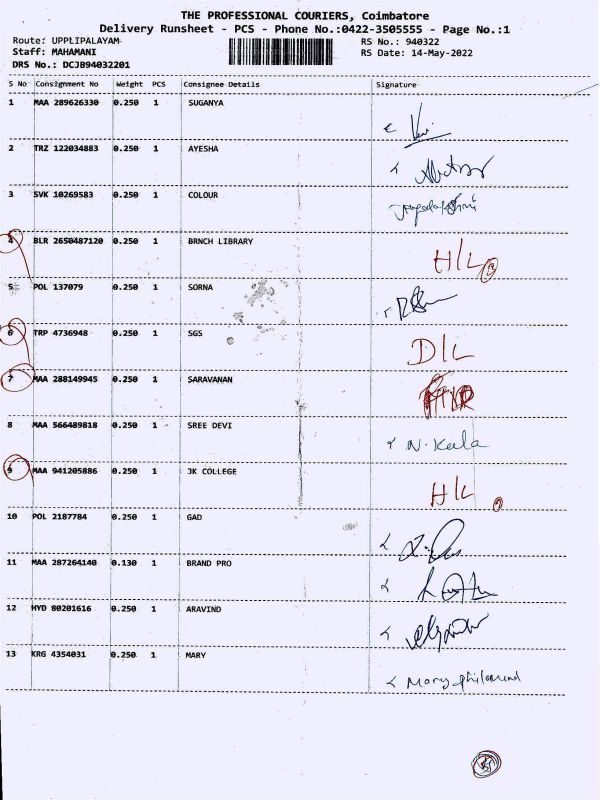 THE PROFESSIONAL COURIERS, Coimbatore
Delivery Runsheet - PCS - Phone No.:0422-3505555 - Page No.:1
Route: UPPLIPALAYAM RS No.: 940322
Staff: MAHAMANI RS Date: 14-May-2022
DRS No.: DCJB94032201
S No Consignment No Weight PCS Consignee Details Signature
1 MAA 289626330 0.250 1 SUGANYA
2 TRZ 122034883 0.250 1 AYESHA
3 SVK 10269583 0.250 1 COLOUR
4 BLR 2650487120 0.250 1 BRNCH LIBRARY H/L
5 POL 137079 0.250 1 SORNA
6 TRP 4736948 0.250 1 SGS D/L
7 MAA 288149945 0.250 1 SARAVANAN
8 MAA 566489818 0.250 1 SREE DEVI N. Kala
9 MAA 941205886 0.250 1 JK COLLEGE H/L
10 POL 2187784 0.250 1 GAD
11 MAA 287264140 0.130 1 BRAND PRO
12 HYD 80201616 0.250 1 ARAVIND
13 KRG 4354031 0.250 1 MARY Mary